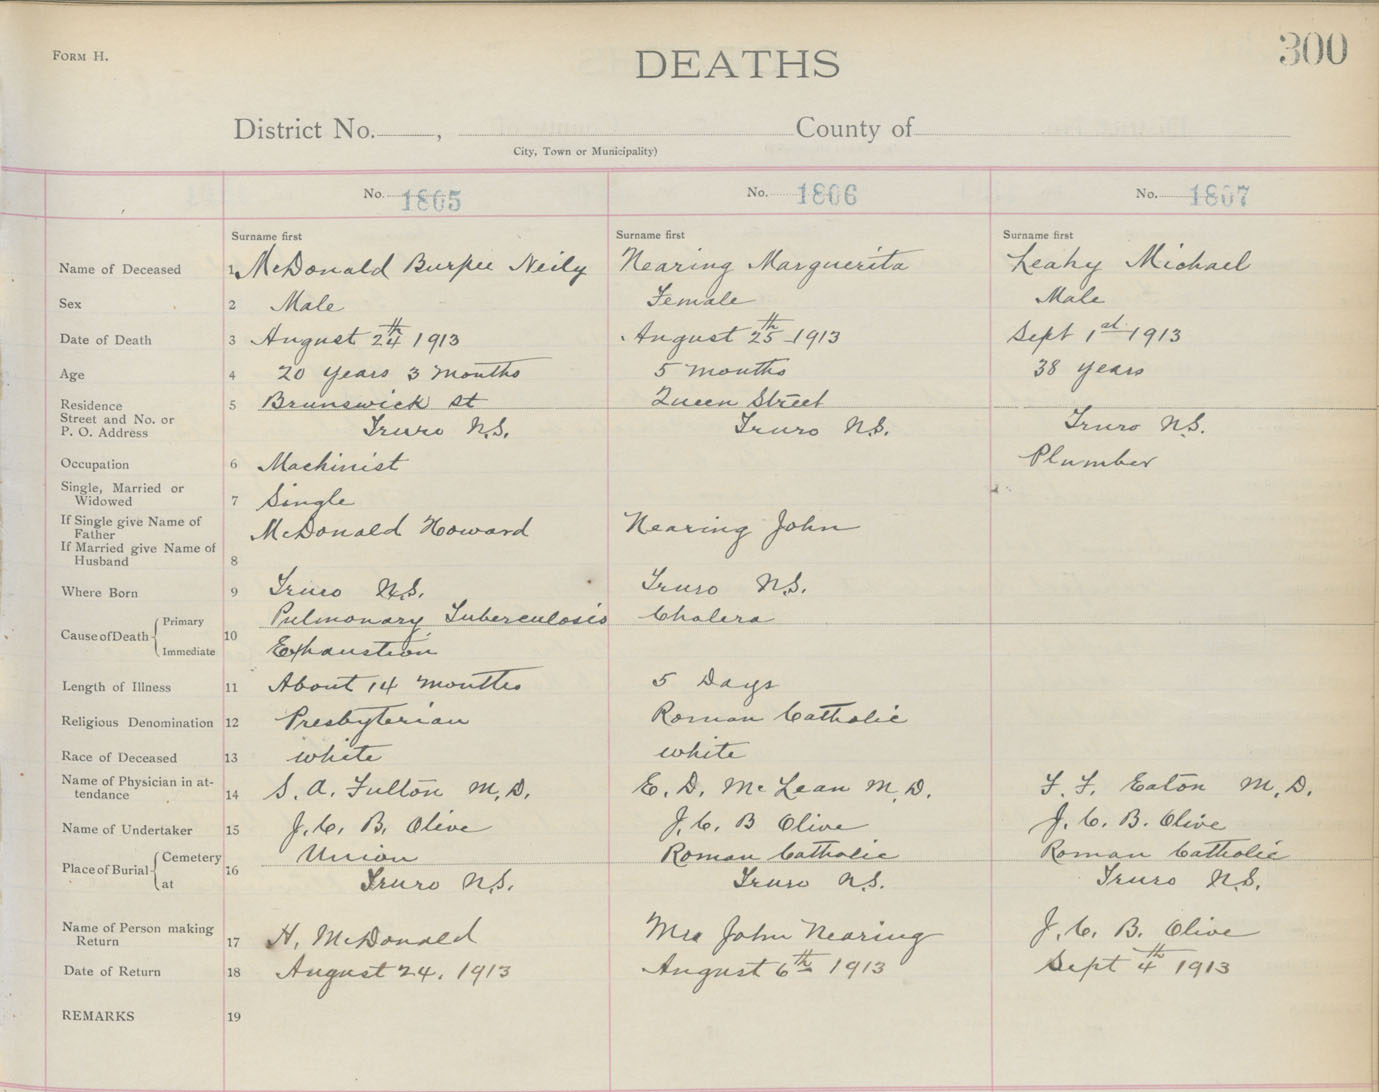 FORM H.
DEATHS
300
District No. , County of
City, Town or Municipality)
No. 1805 No. 1806 No. 1807
Surname first Surname first Surname first
Name of Deceased 1 McDonald Burpee Neily Nearing Marguerita Leahy Michael
Sex 2 Male Female Male
Date of Death 3 August 24th 1913 August 25th 1913 Sept 1st 1913
Age 4 20 years 3 months 5 months 38 years
Residence 5 Brunswick St Queen Street
Street and No. or
P. O. Address Truro N.S. Truro N.S. Truro N.S.
Occupation 6 Machinist Plumber
Single, Married or
Widowed 7 Single
If Single give Name of
Father McDonald Howard Nearing John
If Married give Name of
Husband 8
Where Born 9 Truro N.S. Truro N.S.
Cause of Death 10 Primary Pulmonary Tuberculosis Cholera
Immediate Exhaustion
Length of Illness 11 About 14 months 5 Days
Religious Denomination 12 Presbyterian Roman Catholic
Race of Deceased 13 white white
Name of Physician in at-
tendance 14 S. A. Fulton M.D. E. D. McLean M.D. F. F. Eaton M.D.
Name of Undertaker 15 J. C. B. Olive J. C. B Olive J. C. B. Olive
Place of Burial 16 Cemetery Union Roman Catholic Roman Catholic
at Truro N.S. Truro N.S. Truro N.S.
Name of Person making
Return 17 H. McDonald Mrs John Nearing J. C. B. Olive
Date of Return 18 August 24, 1913 August 6th 1913 Sept 4th 1913
REMARKS 19